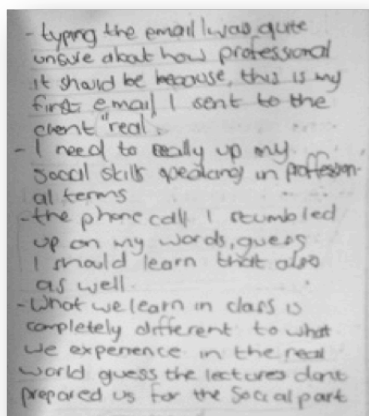 - typing the email I was quite
unsure about how professional
it should be because, this is my
first email I sent to the
client "real".
- I need to really up my
social skills speaking in proffesion-
al terms
- the phone call I stumbled
up on my words, guess
I should learn that also
as well.
- What we learn in class is
completely different to what
we experience in the real
world guess the lectures dont
prepared us for the social part